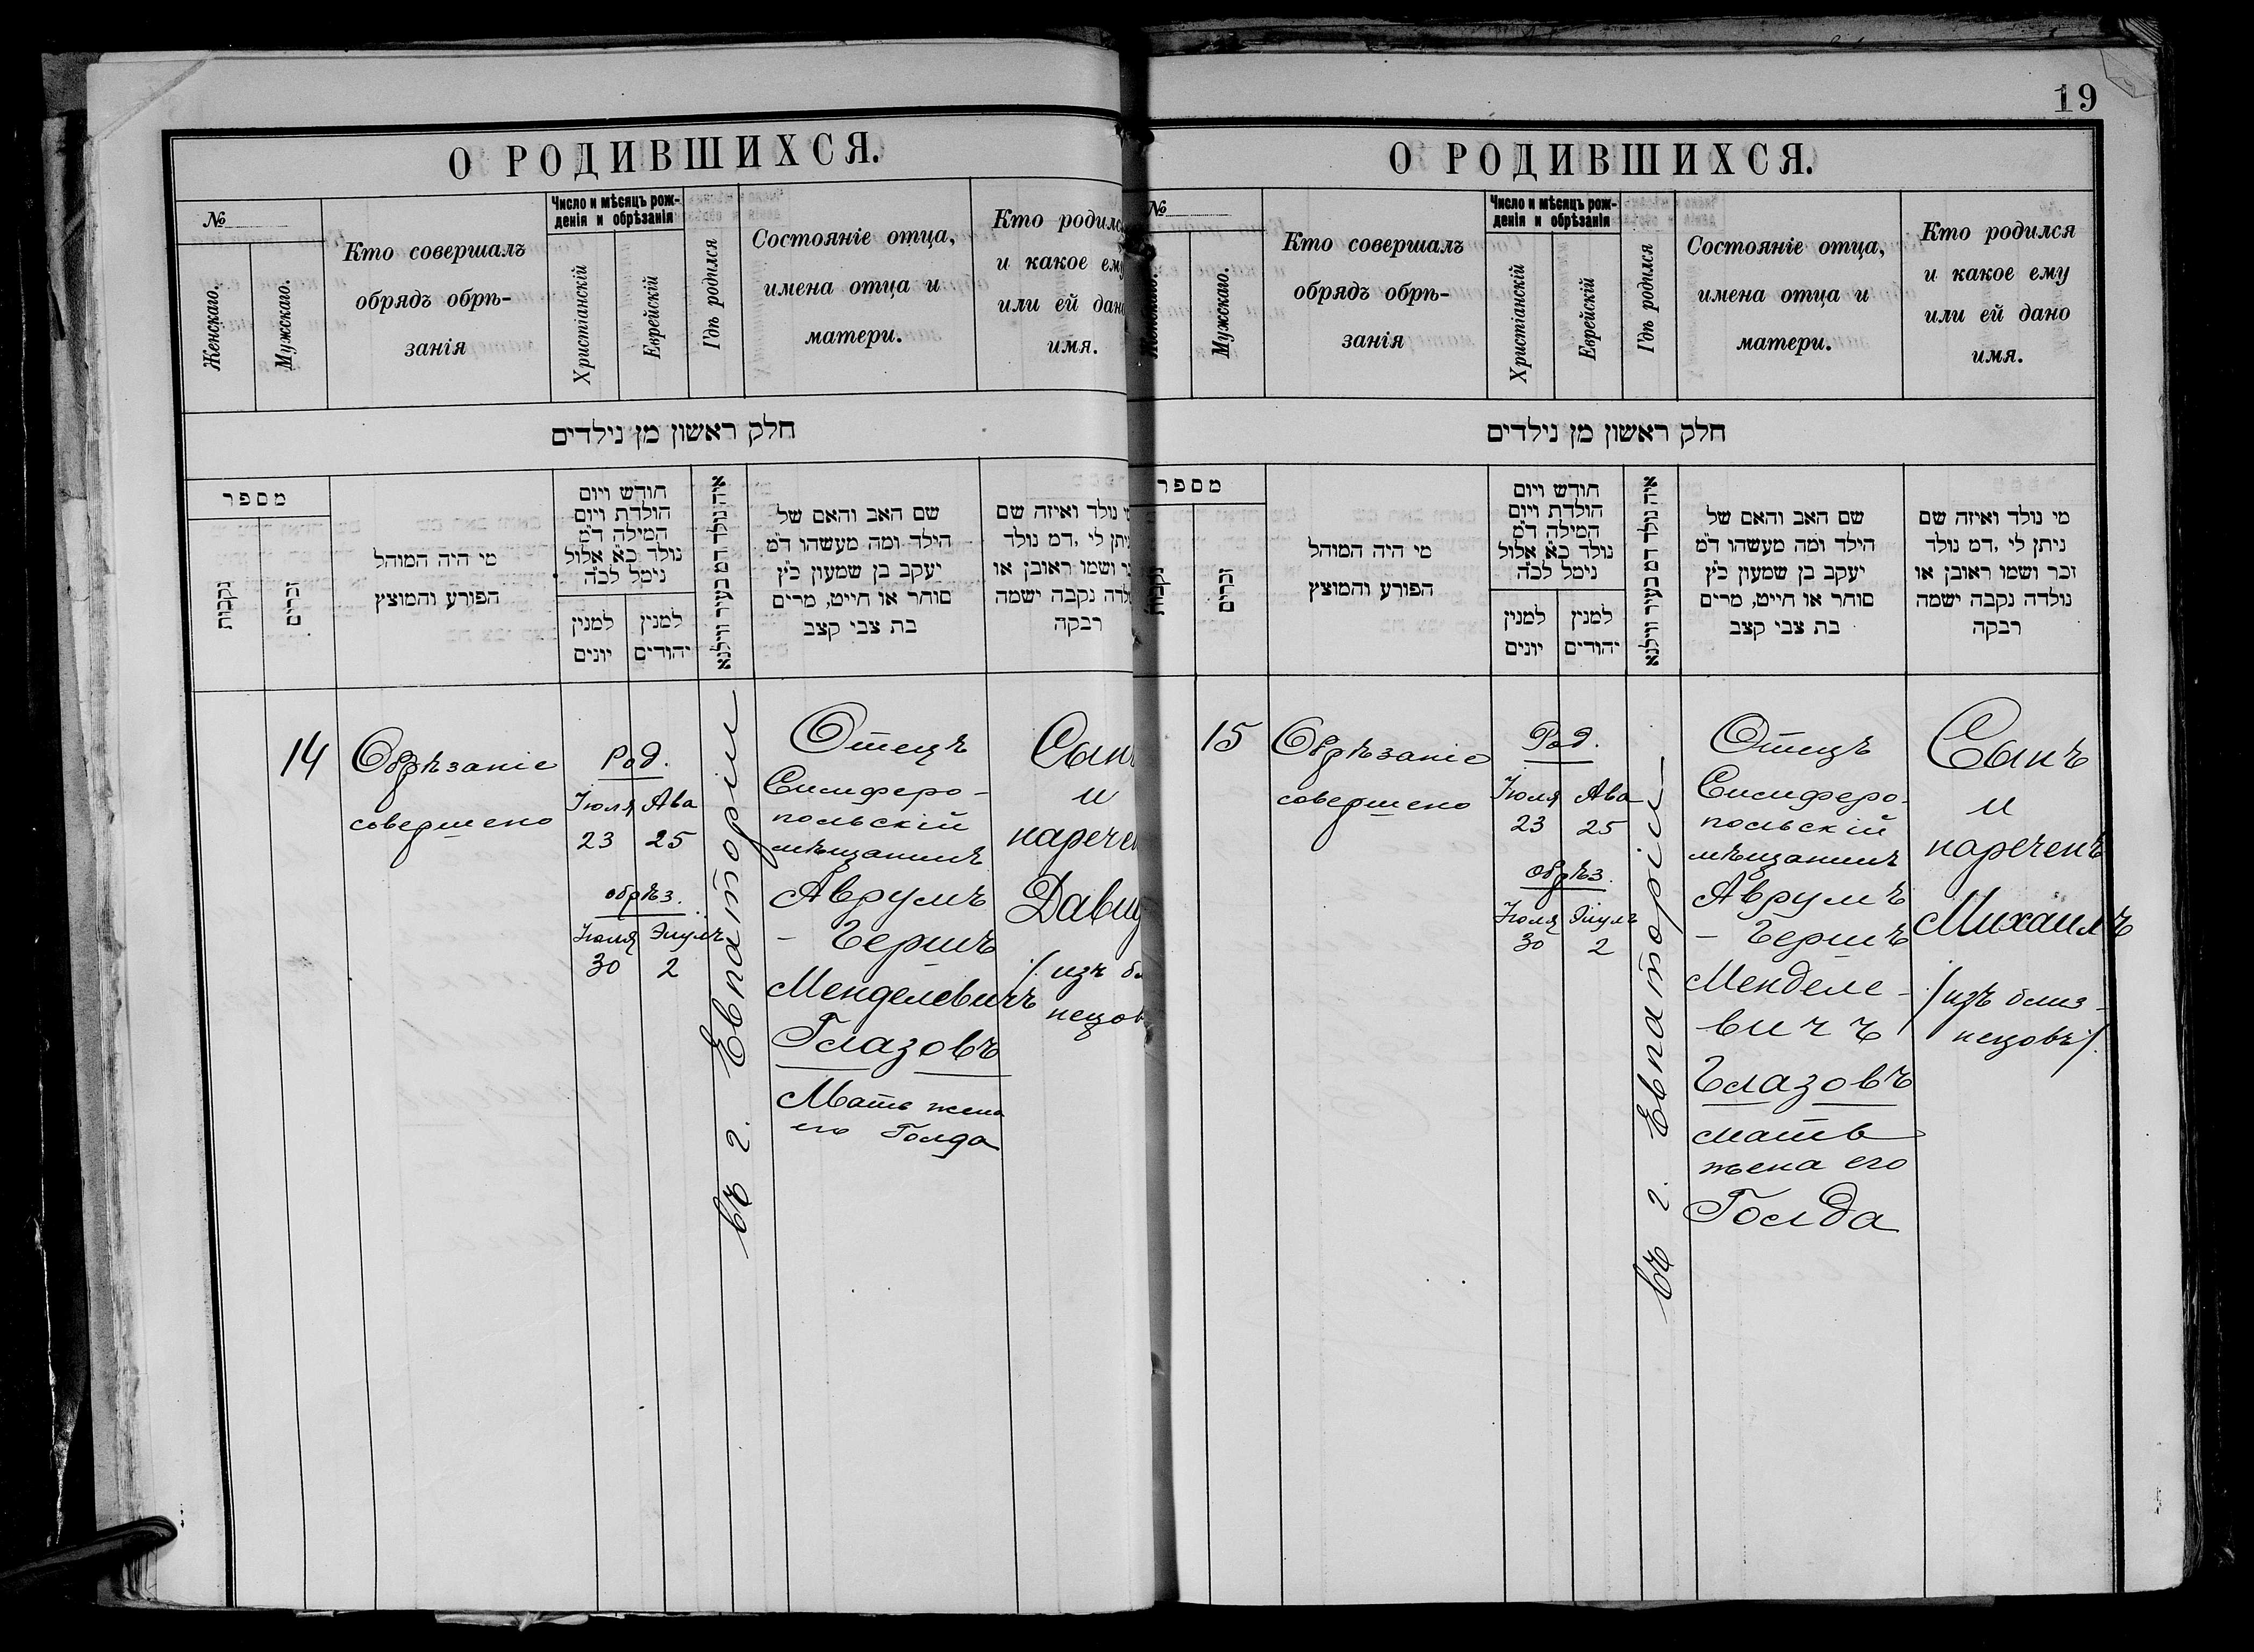 О РОДИВШИХСЯ.
№
Женскаго.
Мужскаго.
Кто совершалъ
обрядъ обрѣ-
занія
Число и мѣсяцъ рож-
денія и обрѣзанія
Христіанскій
Еврейскій
Гдѣ родился
Состояніе отца,
имена отца и
матери.
Кто родился
и какое ему
или ей дано
имя.
חלק ראשון מן נילדים
מספר
נקבות
זכרים
מי היה המוהל
הפורע והמוצץ
חודש ויום
הולדת ויום
המילה ד״מ
נולד כ״א אלול
נימל לכ״ה
למנין
יונים
למנין
יהודים
איה נולד דמ בעיר ווילנא
שם האב והאם של
הילד ומה מעשהו ד״מ
יעקב בן שמעון כ״ץ
סוחר או חייט, מרים
בת צבי קצב
נולד ואיזה שם
ניתן לי ,דמ נולד
ושמו ראובן או
נקבה ישמה
רבקה
14
Обрѣзаніе
совершено
Род.
Іюля Ава
23 25
обрѣз.
Іюля Элулъ
30 2
въ г. Евпаторіи
Отецъ
Симферо-
польскій
мѣщанинъ
Аврумъ
- Гершъ
Менделевичъ
Глазовъ
Мать жена
его Голда
Сынъ
и
нареченъ
Давид
/ изъ бл
нецов
19
О РОДИВШИХСЯ.
№
Женскаго.
Мужскаго.
Кто совершалъ
обрядъ обрѣ-
занія
Число и мѣсяцъ рож-
денія и обрѣзанія
Христіанскій
Еврейскій
Гдѣ родился
Состояніе отца,
имена отца и
матери.
Кто родился
и какое ему
или ей дано
имя.
חלק ראשון מן נילדים
מספר
נקבות
זכרים
מי היה המוהל
הפורע והמוצץ
חודש ויום
הולדת ויום
המילה ד״מ
נולד כ״א אלול
נימל לכ״ה
למנין
יונים
למנין
יהודים
איה נולד דמ בעיר ווילנא
שם האב והאם של
הילד ומה מעשהו ד״מ
יעקב בן שמעון כ״ץ
סוחר או חייט, מרים
בת צבי קצב
מי נולד ואיזה שם
ניתן לי ,דמ נולד
זכר ושמו ראובן או
נולדה נקבה ישמה
רבקה
15
Обрѣзаніе
совершено
Род.
Іюля Ава
23 25
обрѣз.
Іюля Элулъ
30 2
въ г. Евпаторіи
Отецъ
Симферо-
польскій
мѣщанинъ
Аврумъ
- Гершъ
Менделе-
вичъ
Глазовъ
мать
жена его
Голда
Сынъ
и
нареченъ
Михаилъ
/изъ близ-
нецовъ/.